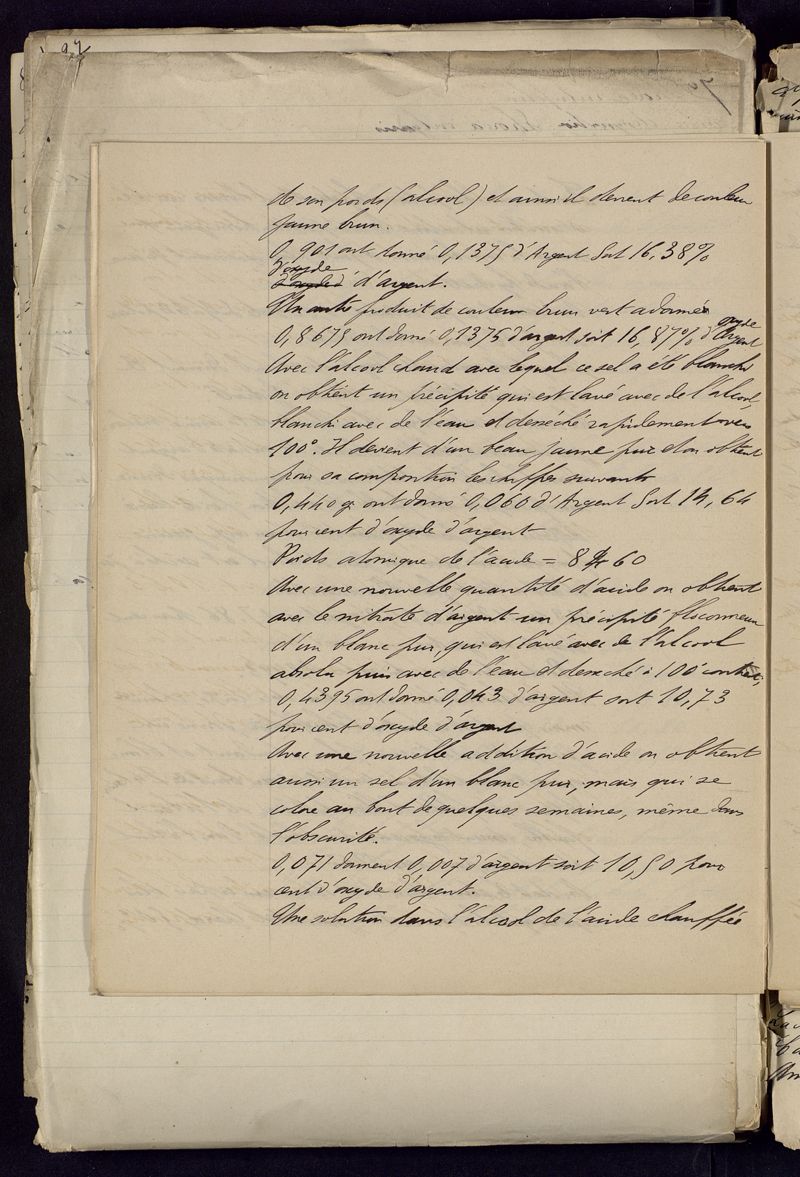 97
de son poids (alcool) et aussi il devient de couleur
jaune brun.
0,901 ont donné 0,1375 d'Argent Soit 16,38%
d'oxyde
d'argent.
Un autre produit de couleur brun vert a donné
0,8675 ont donné 0,1375 d'argent soit 16,87% d'oxyde
d'Argent
Avec l'alcool chaud avec lequel ce sel a été blanchi
on obtient un précipité qui est lavé avec de l'alcool,
blanchi avec de l'eau et desséché rapidement vers
100°. Il devient d'un beau jaume pur et on obtient
pour sa composition les chiffres suivants
0,440 gr ont donné 0,060 d'Argent Soit 14,64
pour cent d'oxyde d'argent
Poids atomique de l'acide = 8 60
Avec une nouvelle quantité d'acide on obtient
avec le nitrate d'argent un précipité floconneux
d'un blanc pur, qui est lavé avec de l'alcool
absolu puis avec de l'eau et desséché à 100°
0,4395 ont donné 0,043 d'argent soit 10,73
pour cent d'oxyde d'argent
Avec une nouvelle addition d'acide on obtient
aussi un sel d'un blanc pur, mais qui se
colore au bout de quelques semaines, même dans
l'obscurité.
0,071 donnent 0,007 d'argent soit 10,50 pour
cent d'oxyde d'argent.
Une solution dans l'alcool de l'acide chauffée